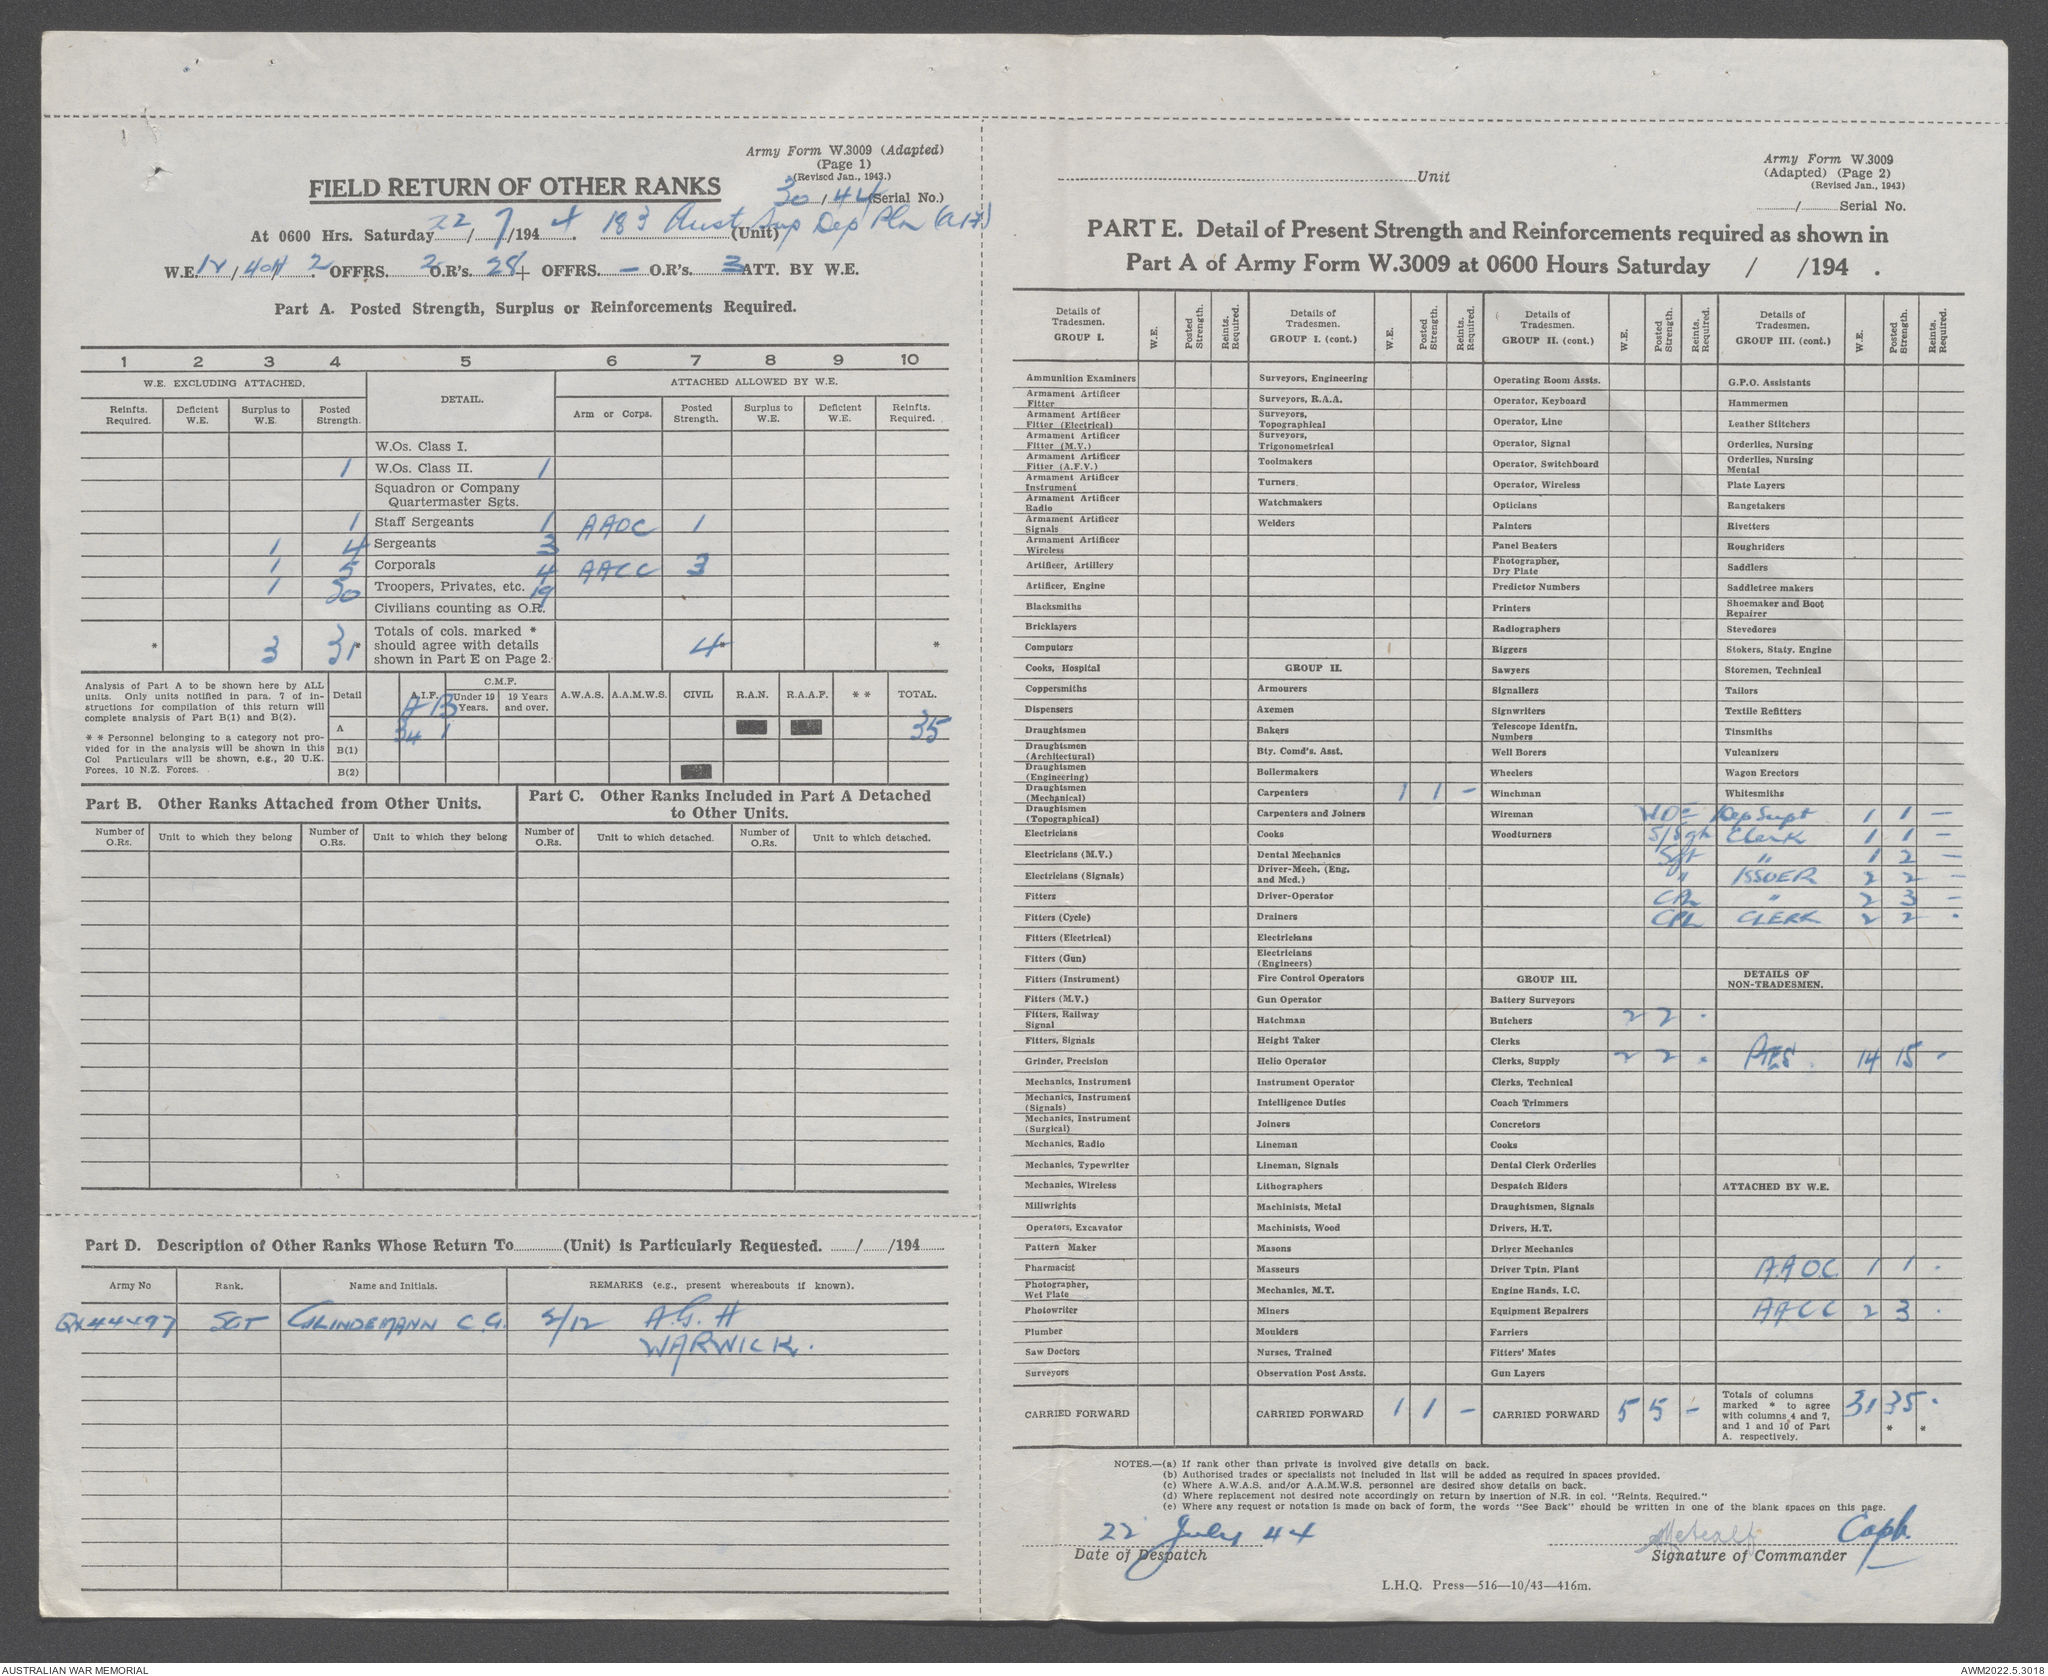 Army Form W.3009 (Adapted)
(Page 1)
(Revised Jan., 1943.)
FIELD RETURN OF OTHER RANKS
30/44 (Serial No.)
At 0600 Hrs. Saturday 22/7/1944. 183 Aust Sup Dep Pln (A.I.F) (Unit)
W.E. / 2 OFFRS. 2 O.R's. 28 + OFFRS. - O.R's. 3 ATT. BY W.E.
Part A. Posted Strength, Surplus or Reinforcements Required.
1 2 3 4 5 6 7 8 9 10
W.E. EXCLUDING ATTACHED. DETAIL. ATTACHED ALLOWED BY W.E.
Reinfts. Required. Deficient W.E. Surplus to W.E. Posted Strength. Arm or Corps. Posted Strength. Surplus to W.E. Deficient W.E. Reinfts. Required.
W.Os. Class I.
1 W.Os. Class II. 1
Squadron or Company
Quartermaster Sgts.
1 Staff Sergeants 1 AAOC 1
1 4 Sergeants 3
1 5 Corporals 4 AACC 3
1 20 Troopers, Privates, etc. 19
Civilians counting as O.R.
* 3 31* Totals of cols. marked * should agree with details shown in Part E on Page 2. 4* *
Analysis of Part A to be shown here by ALL
units. Only units notified in para. 7 of in-
structions for compilation of this return will
complete analysis of Part B(1) and B(2).
* * Personnel belonging to a category not pro-
vided for in the analysis will be shown in this
Col Particulars will be shown, e.g., 20 U.K.
Forces, 10 N.Z. Forces.
Detail A.I.F. C.M.F. Under 19 Years. 19 Years and over. A.W.A.S. A.A.M.W.S. CIVIL R.A.N. R.A.A.F. * * TOTAL.
A B
A 34 1 35
B(1)
B(2)
Part B. Other Ranks Attached from Other Units.
Part C. Other Ranks Included in Part A Detached
to Other Units.
Number of O.Rs. Unit to which they belong Number of O.Rs. Unit to which they belong Number of O.Rs. Unit to which detached. Number of O.Rs. Unit to which detached.
Part D. Description of Other Ranks Whose Return To (Unit) is Particularly Requested. / /194
Army No Rank. Name and Initials. REMARKS (e.g., present whereabouts if known).
QX44497 SGT GLINDEMANN C.G. 2/12 A.G.H
WARWICK.
Unit
Army Form W.3009
(Adapted) (Page 2)
(Revised Jan., 1943)
/ Serial No.
PART E. Detail of Present Strength and Reinforcements required as shown in
Part A of Army Form W.3009 at 0600 Hours Saturday / /194 .
Details of Tradesmen. GROUP I. W.E. Posted Strength. Reints. Required.
Ammunition Examiners
Armament Artificer Fitter
Armament Artificer Fitter (Electrical)
Armament Artificer Fitter (M.V.)
Armament Artificer Fitter (A.F.V.)
Armament Artificer Instrument
Armament Artificer Radio
Armament Artificer Signals
Armament Artificer Wireless
Artificer, Artillery
Artificer, Engine
Blacksmiths
Bricklayers
Computors
Cooks, Hospital
Coppersmiths
Dispensers
Draughtsmen
Draughtsmen (Architectural)
Draughtsmen (Engineering)
Draughtsmen (Mechanical)
Draughtsmen (Topographical)
Electricians
Electricians (M.V.)
Electricians (Signals)
Fitters
Fitters (Cycle)
Fitters (Electrical)
Fitters (Gun)
Fitters (Instrument)
Fitters (M.V.)
Fitters, Railway Signal
Fitters, Signals
Grinder, Precision
Mechanics, Instrument
Mechanics, Instrument (Signals)
Mechanics, Instrument (Surgical)
Mechanics, Radio
Mechanics, Typewriter
Mechanics, Wireless
Millwrights
Operators, Excavator
Pattern Maker
Pharmacist
Photographer, Wet Plate
Photowriter
Plumber
Saw Doctors
Surveyors
CARRIED FORWARD
Details of Tradesmen. GROUP I. (cont.) W.E. Posted Strength. Reints. Required.
Surveyors, Engineering
Surveyors, R.A.A.
Surveyors, Topographical
Surveyors, Trigonometrical
Toolmakers
Turners.
Watchmakers
Welders
GROUP II.
Armourers
Axemen
Bakers
Bty. Comd's. Asst.
Boilermakers
Carpenters 1 1 -
Carpenters and Joiners
Cooks
Dental Mechanics
Driver-Mech. (Eng. and Med.)
Driver-Operator
Drainers
Electricians
Electricians (Engineers)
Fire Control Operators
Gun Operator
Hatchman
Height Taker
Helio Operator
Instrument Operator
Intelligence Duties
Joiners
Lineman
Lineman, Signals
Lithographers
Machinists, Metal
Machinists, Wood
Masons
Masseurs
Mechanics, M.T.
Miners
Moulders
Nurses, Trained
Observation Post Assts.
CARRIED FORWARD 1 1 -
Details of Tradesmen. GROUP II. (cont.) W.E. Posted Strength. Reints. Required.
Operating Room Assts.
Operator, Keyboard
Operator, Line
Operator, Signal
Operator, Switchboard
Operator, Wireless
Opticians
Painters
Panel Beaters
Photographer, Dry Plate
Predictor Numbers
Printers
Radiographers
Riggers
Sawyers
Signallers
Signwriters
Telescope Identfn. Numbers
Well Borers
Wheelers
Winchman
Wireman
Woodturners
GROUP III.
Battery Surveyors
Butchers 2 2 -
Clerks
Clerks, Supply 2 2 -
Clerks, Technical
Coach Trimmers
Concretors
Cooks
Dental Clerk Orderlies
Despatch Riders
Draughtsmen, Signals
Drivers, H.T.
Driver Mechanics
Driver Tptn. Plant
Engine Hands, I.C.
Equipment Repairers
Farriers
Fitters' Mates
Gun Layers
CARRIED FORWARD 5 5 -
Details of Tradesmen. GROUP III. (cont.) W.E. Posted Strength. Reints. Required.
G.P.O. Assistants
Hammermen
Leather Stitchers
Orderlies, Nursing
Orderlies, Nursing Mental
Plate Layers
Rangetakers
Rivetters
Roughriders
Saddlers
Saddletree makers
Shoemaker and Boot Repairer
Stevedores
Stokers, Staty. Engine
Storemen, Technical
Tailors
Textile Refitters
Tinsmiths
Vulcanizers
Wagon Erectors
Whitesmiths
Dep Supt 1 1 -
S/Sgt Clerk 1 1 -
Sgt " 1 2 -
" ISSUER 2 2 -
CPL " 2 3 -
CPL CLERK 2 2 -
DETAILS OF NON-TRADESMEN.
PTES. 14 15 -
ATTACHED BY W.E.
A.A.O.C. 1 1 -
AACC 2 3 -
Totals of columns marked * to agree with columns 4 and 7, and 1 and 10 of Part A. respectively. 31 35 - * *
NOTES.—(a) If rank other than private is involved give details on back.
(b) Authorised trades or specialists not included in list will be added as required in spaces provided.
(c) Where A.W.A.S. and/or A.A.M.W.S. personnel are desired show details on back.
(d) Where replacement not desired note accordingly on return by insertion of N.R. in col. "Reints. Required."
(e) Where any request or notation is made on back of form, the words "See Back" should be written in one of the blank spaces on this page.
22 July 44
Date of Despatch
Metcalf Capt.
Signature of Commander
L.H.Q. Press—516—10/43—416m.
AUSTRALIAN WAR MEMORIAL
AWM2022.5.3018